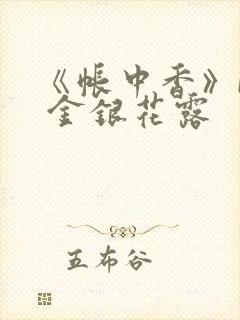 《帐中香》
金银花露
五布谷